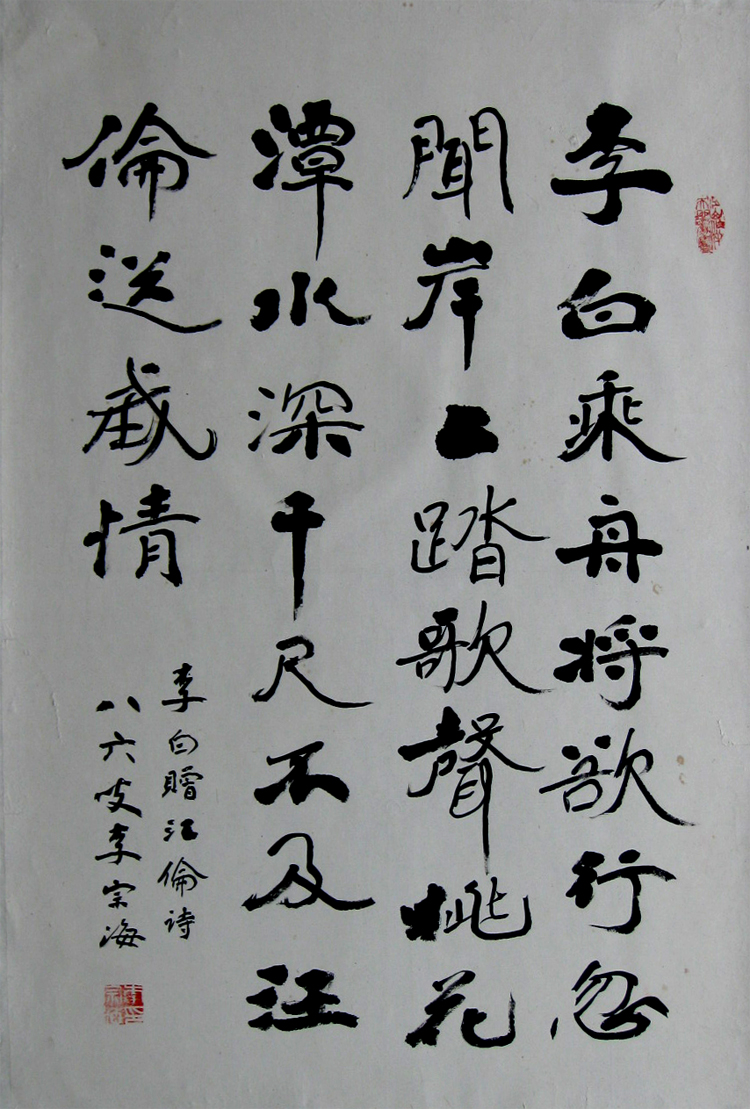 李白乘舟将欲行忽
聞岸上踏歌聲桃花
潭水深千尺不及汪
倫送我情
李白贈汪倫詩
八六叟李宗海